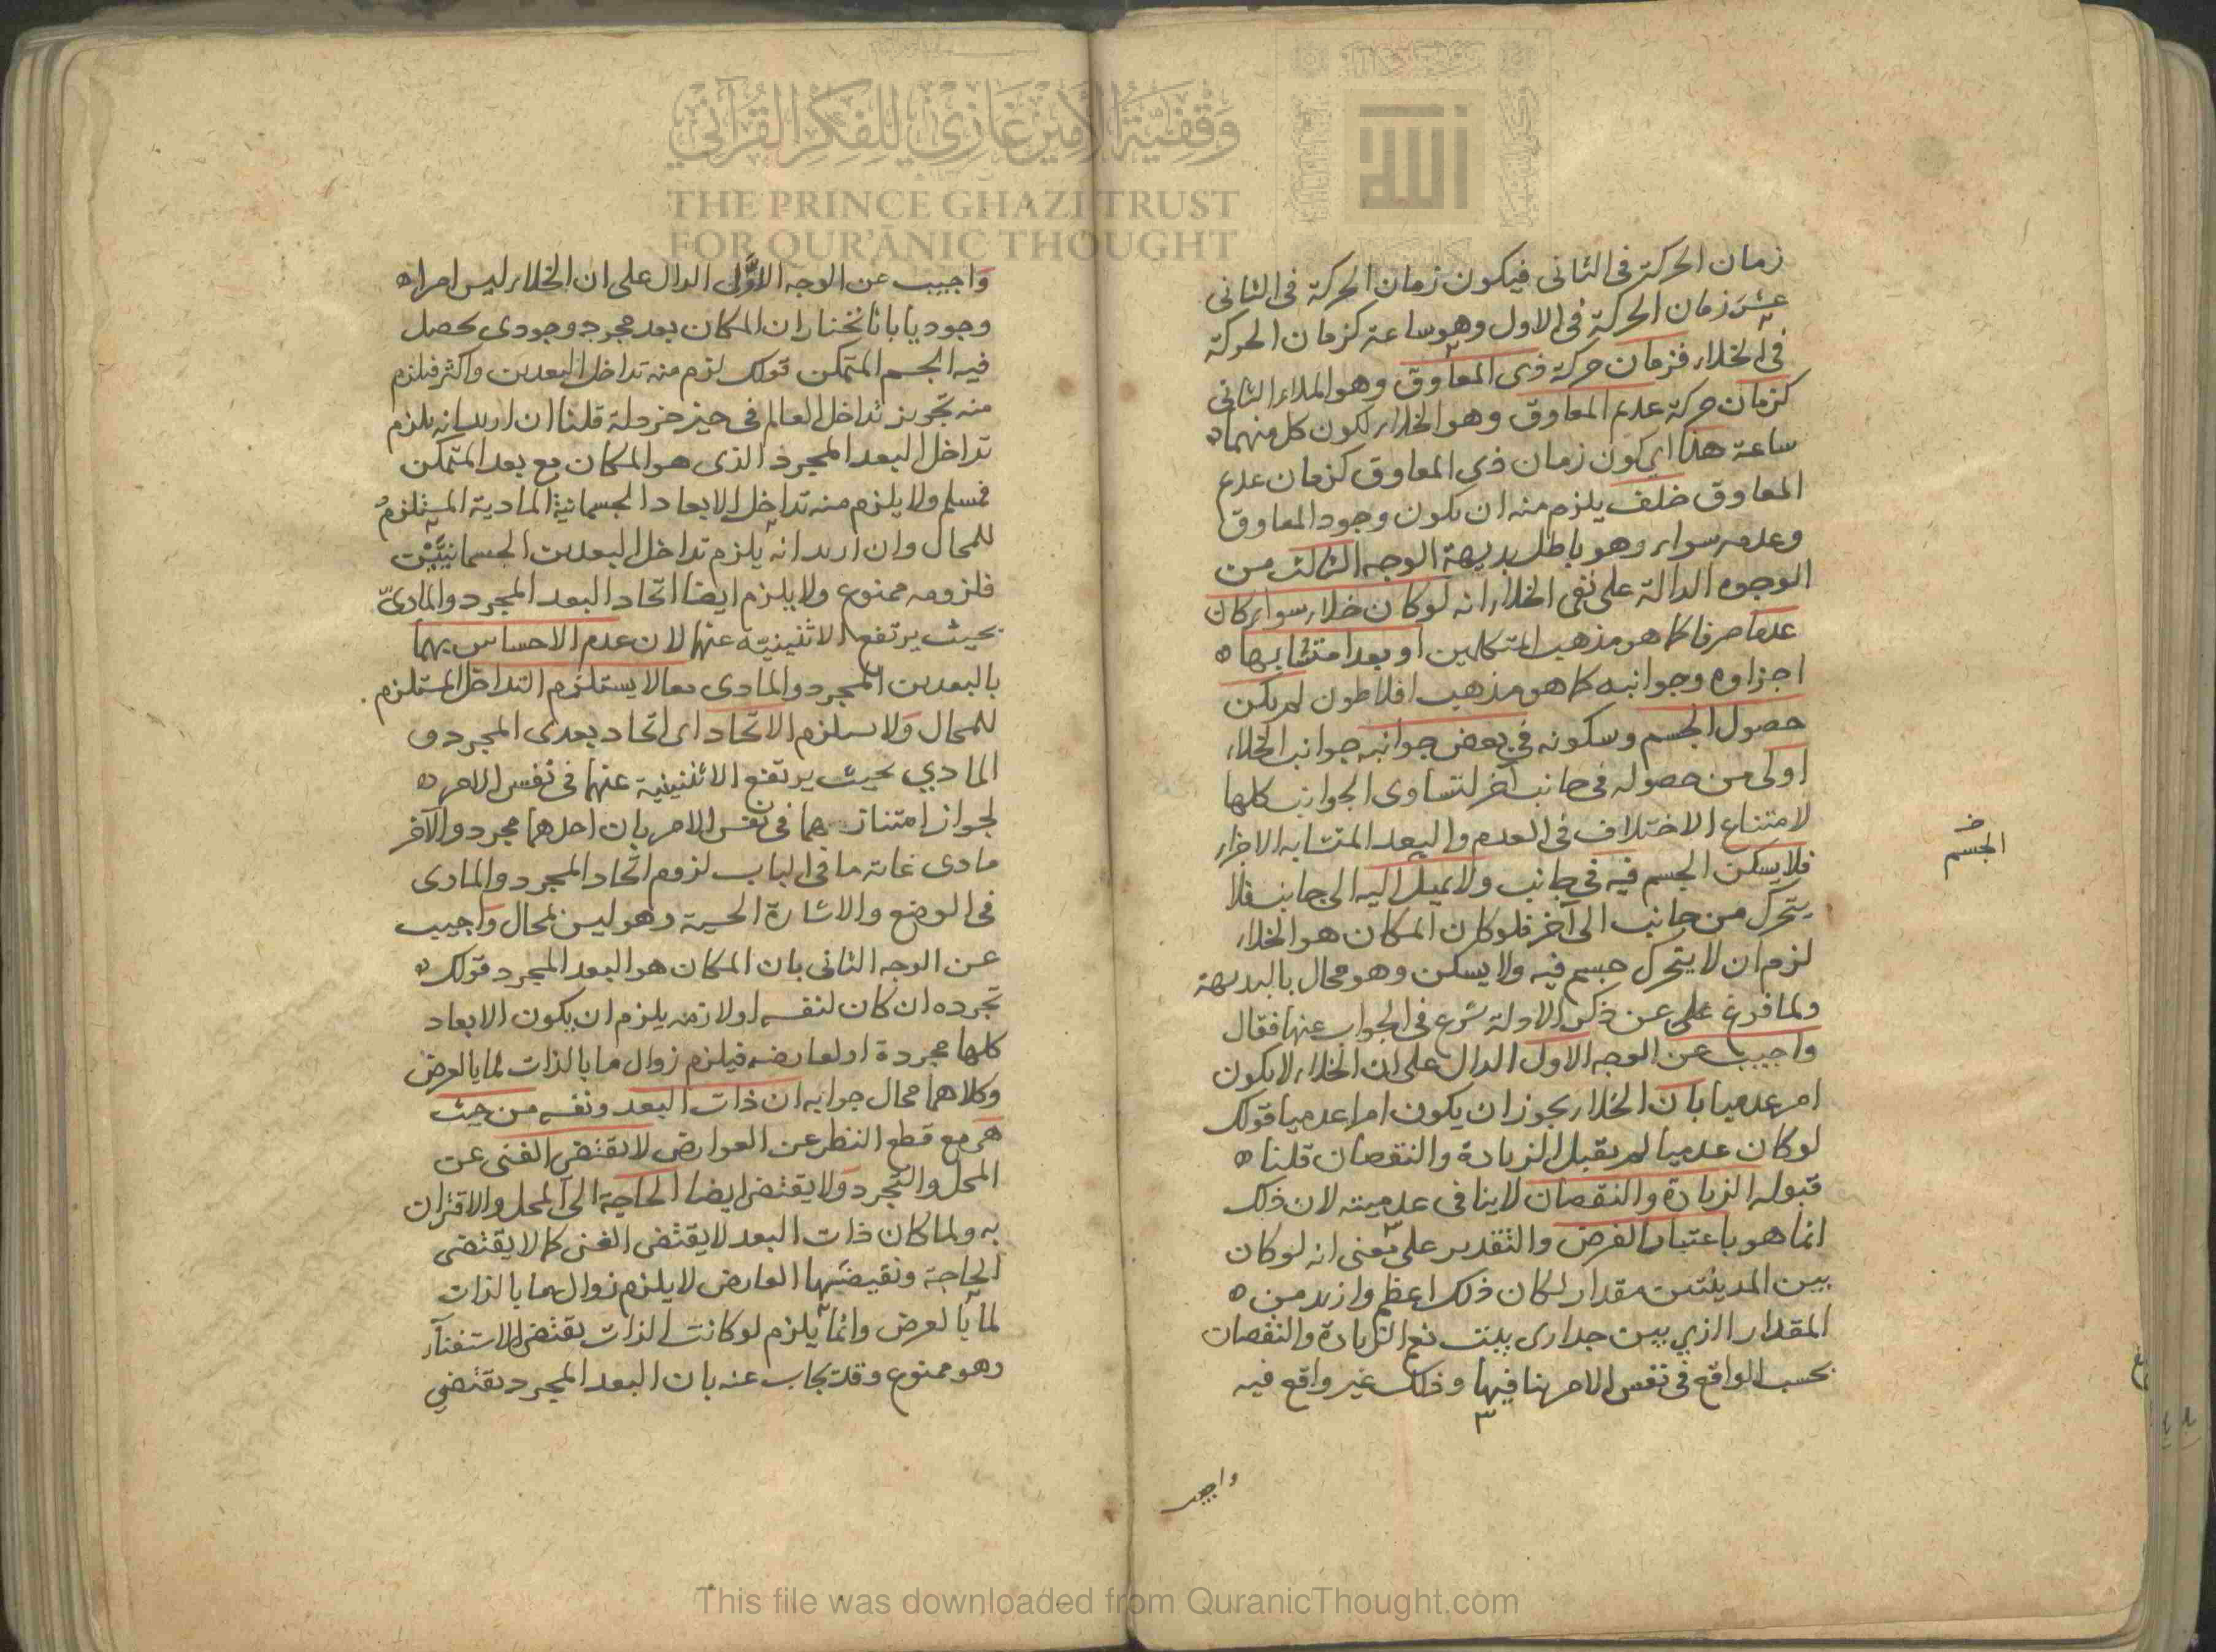 وقفية الأمير غازي للفكر القرآني
THE PRINCE GHAZI TRUST
FOR QUR'ĀNIC THOUGHT
زمان الحركة فى الثانى فيكون زمان الحركة فى الثانى
عشر زمان الحركة فى الاول وهو ساعة كزمان الحركة
فى الخلاء فزمان حركة ذى المعاوق وهو الملاء الثانى
كزمان حركة عديم المعاوق وهو الخلاء لكون كل منهما
ساعة هذا اي كون زمان ذي المعاوق كزمان عديم
المعاوق خلف يلزم منه ان يكون وجود المعاوق
وعدمه سواء وهو باطل بديهة الوجه الثالث من
الوجوه الدالة على نفى الخلاء انه لو كان خلاء سواء كان
عدما صرفا كما هو مذهب المتكلمين او بعدا متشابها
اجزاوه وجوانبه كما هو مذهب افلاطون لم يكن
حصول الجسم وسكونه في بعض جوانبه جوانب الخلاء
اولى من حصوله فى جانب آخر لتساوى الجوانب كلها
لامتناع الاختلاف فى العدم والبعد المتشابه الاجزاء
فلا يسكن الجسم فيه في جانب ولا يميل اليه الى جانب فلا
يتحرك من جانب الى آخر فلو كان المكان هو الخلاء
لزم ان لا يتحرك جسم فيه ولا يسكن وهو محال بالبديهة
ولما فرغ على عن ذكر الادلة شرع فى الجواب عنها فقال
واجيب عن الوجه الاول الدال على ان الخلاء لا يكون
امر عدميا بان الخلاء يجوز ان يكون امرا عدميا قولك
لو كان عدميا لم يقبل الزيادة والنقصان قلنا
قبوله الزيادة والنقصان لا ينافى عدميته لان ذلك
انما هو باعتبار الفرض والتقدير على معنى انه لو كان
بين المدينتين مقدار لكان ذلك اعظم وازيد من
المقدار الذي بين جدارى بيت نعم الزيادة والنقصان
بحسب الواقع فى نفس الامر ينافيها وذلك غير واقع فيه
واجيب
الجسم
واجيب عن الوجه الاوَّل الدال على ان الخلاء ليس امرا
وجوديا بانا نختار ان المكان بعد مجرد وجودي يحصل
فيه الجسم المتمكن قولك لزم منه تداخل البعدين واكثر فيلزم
منه تجويز تداخل العالم فى حيز خردلة قلنا ان اريد انه يلزم
تداخل البعد المجرد الذى هو المكان مع بعد المتمكن
فمسلم ولا يلزم منه تداخل الابعاد الجسمانية المادية المستلزم
للمحال وان اريد انه يلزم تداخل البعدين الجسمانيّين
فلزومه ممنوع ولا يلزم ايضا اتحاد البعد المجرد والماديّ
بحيث يرتفع الاثنينية عنهما لان عدم الاحساس بهما
بالبعدين المجرد والمادى معا لا يستلزم التداخل المستلزم
للمحال ولا يستلزم الاتحاد اى اتحاد بعدى المجرد و
المادي بحيث يرتفع الاثنينية عنهما فى نفس الامر
لجواز امتياز هما فى نفس الامر بان احدهما مجرد والآخر
مادى غاية ما فى الباب لزوم اتحاد المجرد والمادى
فى الوضع والاشارة الحسية وهو ليس بمحال واجيب
عن الوجه الثانى بان المكان هو البعد المجرد قولك
تجرده ان كان لنفسه او لازمه يلزم ان يكون الابعاد
كلها مجردة او لعارضه فيلزم زوال ما بالذات لما بالعرض
وكلاهما محال جوابه ان ذات البعد ونفسه من حيث
هى مع قطع النظر عن العوارض لا يقتضى الغنى عن
المحل والتجرد ولا يقتضى ايضا الحاجة الى المحل والاقتران
به ولما كان ذات البعد لا يقتضى الغنى كما لا يقتضى
الحاجة ونقيضتها العارض لا يلزم زوال ما بالذات
لما بالعرض وانما يلزم لو كانت الذات يقتضى الاستغناء
وهو ممنوع وقد يجاب عنه بان البعد المجرد يقتضي
This file was downloaded from QuranicThought.com